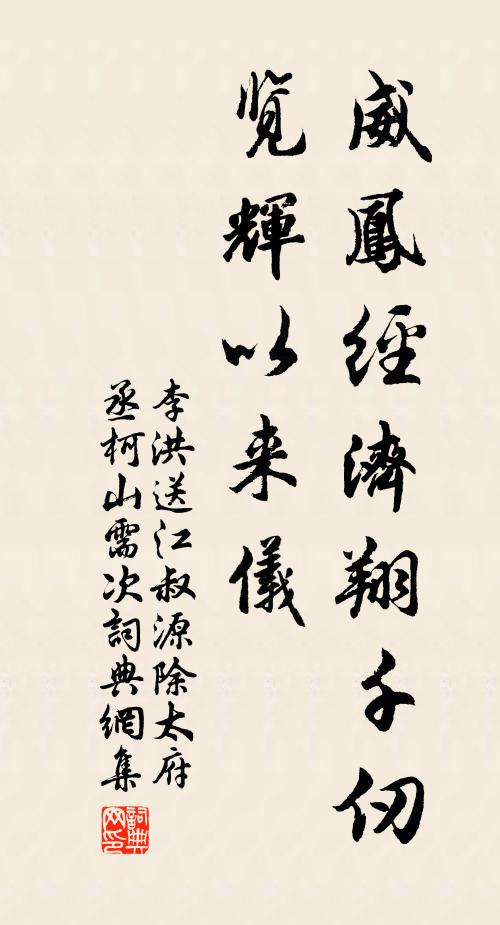 威鳳經濟翔千仞
覧輝以来儀
李洪送江叔源除太府
丞柯山需次詞典網集
詞典網印